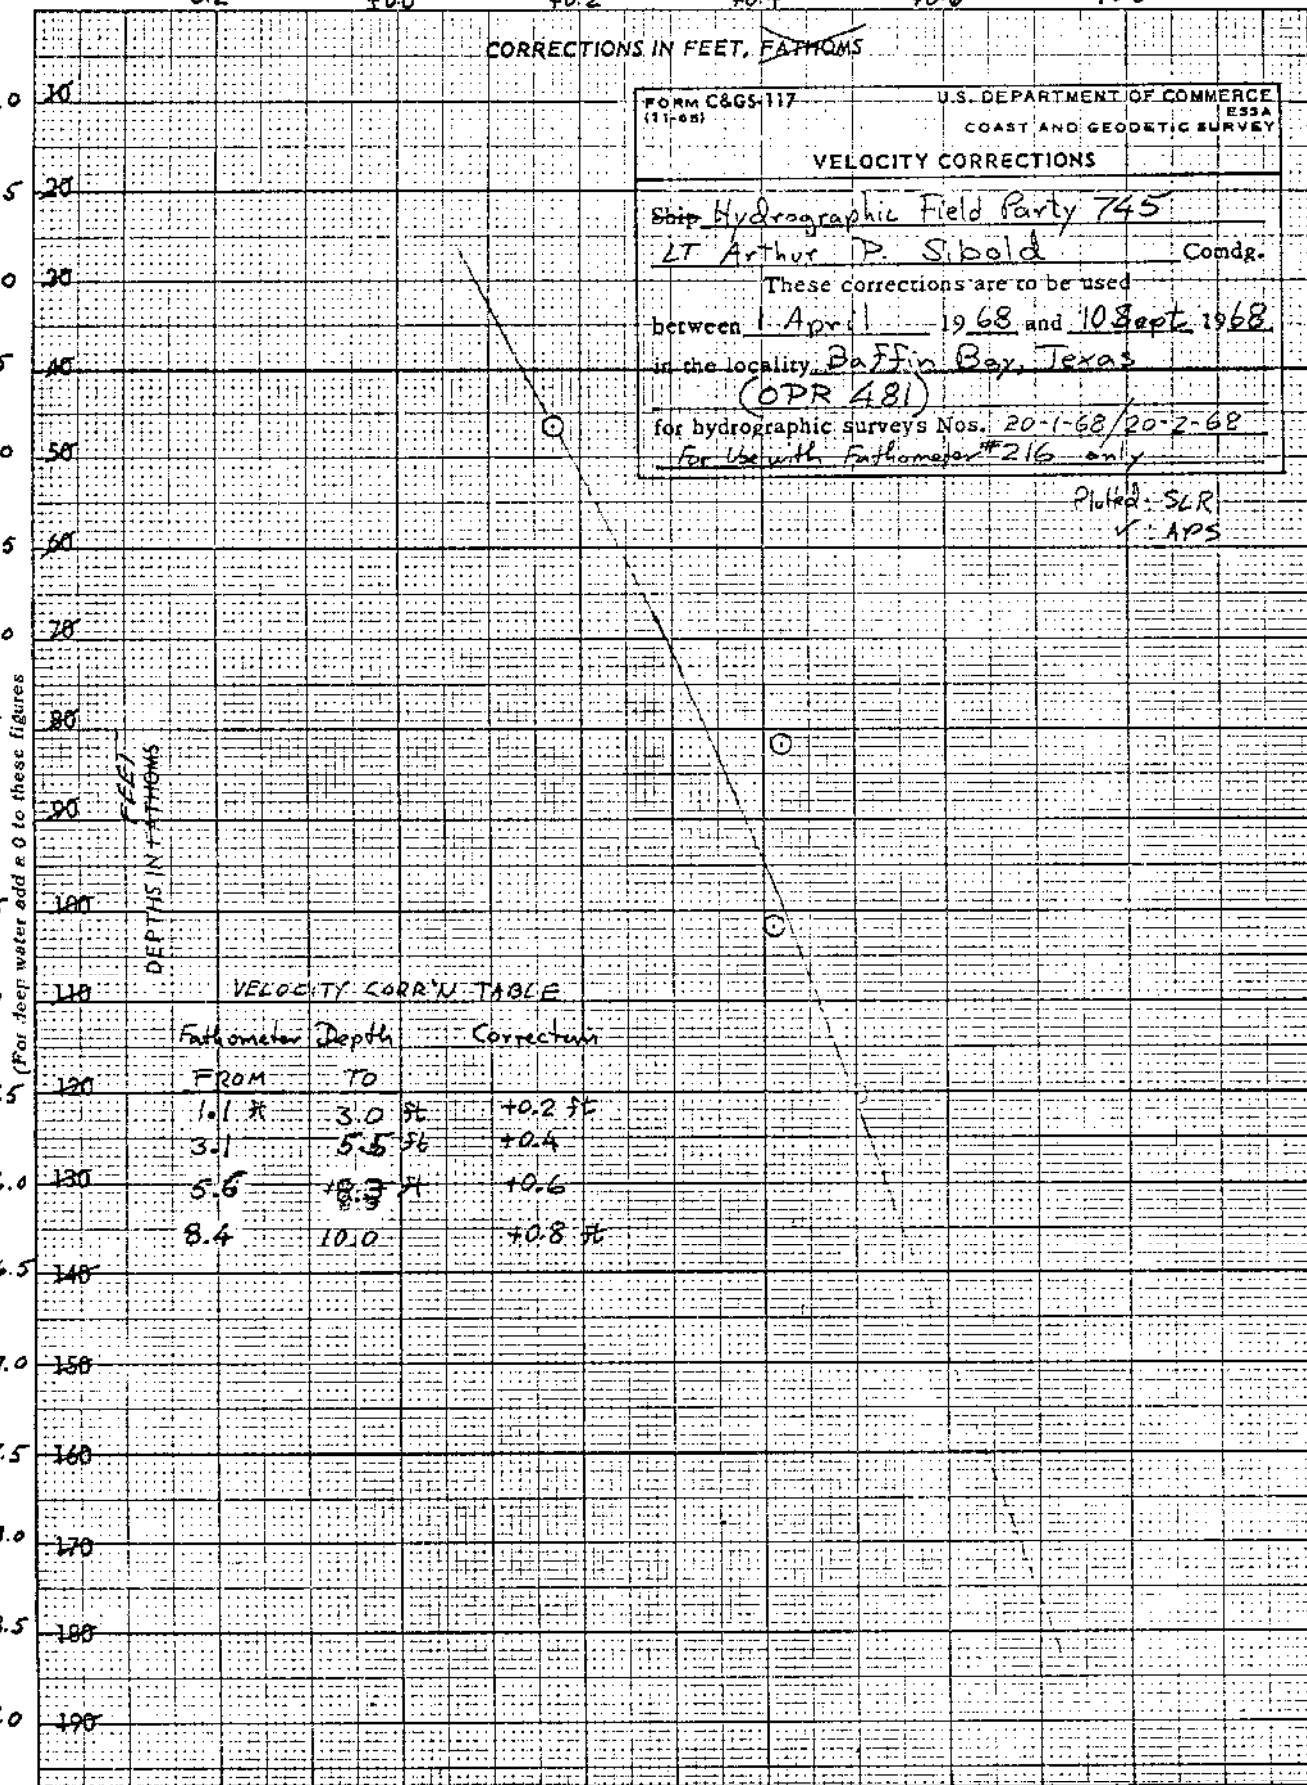 CORRECTIONS IN FEET, FATHOMS
FORM C&GS-117
(11-65)
U.S. DEPARTMENT OF COMMERCE
ESSA
COAST AND GEODETIC SURVEY
VELOCITY CORRECTIONS
Ship Hydrographic Field Party 745
LT Arthur P. Sibold Comdg.
These corrections are to be used
between 1 April 1968 and 10 Sept 1968
in the locality Baffin Bay, Texas
(OPR 481)
for hydrographic surveys Nos. 20-1-68/20-2-68
For Use with Fathometer #216 only
Plotted: SLR
✓: APS
10
20
30
40
50
60
70
80
90
100
110
120
130
140
150
160
170
180
190
(For deep water add a 0 to these figures
FEET
DEPTHS IN FATHOMS
VELOCITY CORR'N TABLE
Fathometer Depth Correction
FROM TO
1.1 ft 3.0 ft +0.2 ft
3.1 5.5 ft +0.4
5.6 8.3 ft +0.6
8.4 10.0 +0.8 ft